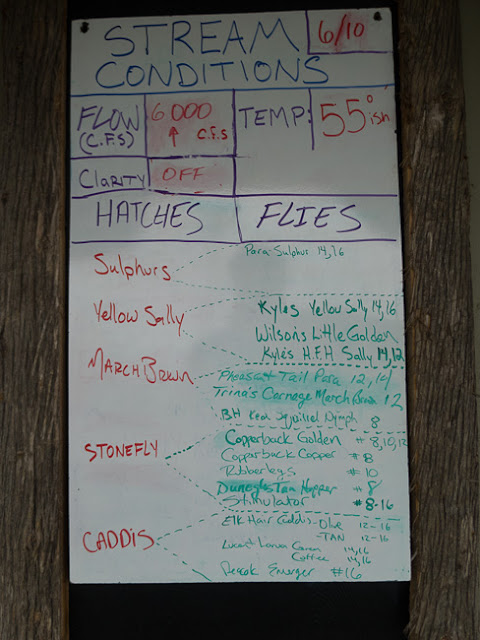 STREAM CONDITIONS 6/10
FLOW (C.F.S) 6000 ↑ C.F.S
TEMP: 55° ish
CLARITY OFF
HATCHES FLIES
Sulphurs
Para-Sulphur 14,16
Yellow Sally
Kyles Yellow Sally 14,16
Wilson's Little Golden
Kyle's H.F.H Sally 14,12
MARCH BRWN
Pheasant Tail Para 12,14
Trina's Carnage March Brown 12
B.H Red Squirrel Nymph 8
STONEFLY
Copperback Golden # 8,10,12
Copperback Copper # 8
Rubberlegs # 10
Tan Hopper # 8
Stimulator # 8-16
CADDIS
Elk Hair Caddis - Olve 12-16
-TAN 12-16
Larva Green 14,16
Coffee 14,16
Emerger #16